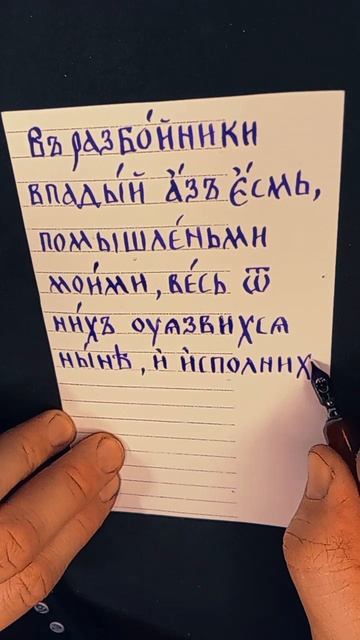 въ разбо́йники
впады́й а҆́зъ є҆́смь,
помышле́ньми
мои́ми, ве́сь ѿ
ни́хъ оуѧзвихсѧ
ны́нѣ, и҆ и҆сполних